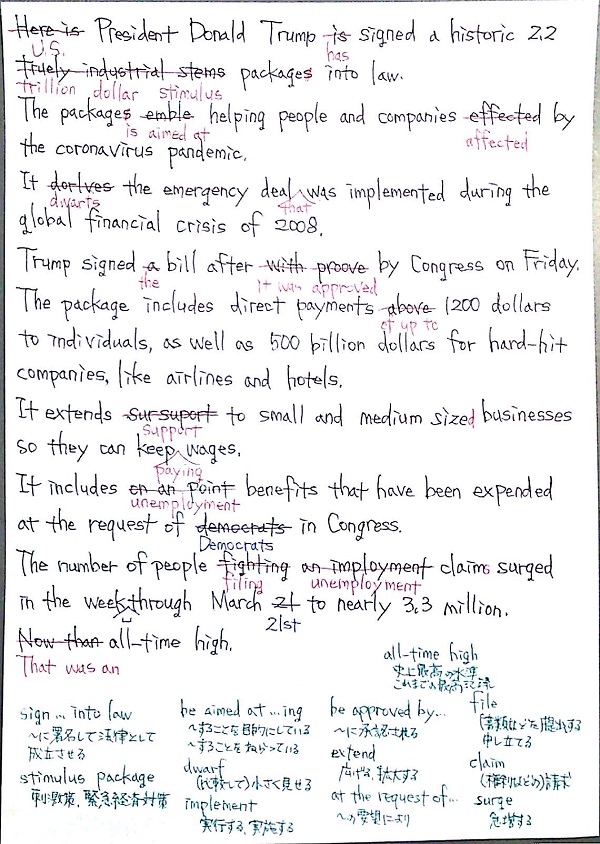 Here is President Donald Trump is signed a historic 2.2
U.S. has
truely industrial stems packages into law.
trillion dollar stimulus
The packages emble helping people and companies effected by
is aimed at affected
the coronavirus pandemic.
It dorives the emergency deal was implemented during the
dwarfs that
global financial crisis of 2008.
Trump signed a bill after with proove by Congress on Friday.
the it was approved
The package includes direct payments above 1200 dollars
of up to
to individuals, as well as 500 billion dollars for hard-hit
companies, like airlines and hotels.
It extends sursuport to small and medium sized businesses
support
so they can keep wages.
paying
It includes on an point benefits that have been expended
unemployment
at the request of democrats in Congress.
Democrats
The number of people fighting an imployment claims surged
filing unemployment
in the week through March 21 to nearly 3.3 million.
21st
Now than all-time high.
That was an
all-time high
史上最高の水準
これまでの最高記録
sign … into law
〜に署名して法律として
成立させる
stimulus package
刺激策, 緊急経済対策
be aimed at …ing
〜することを目的にしている
〜することをねらっている
dwarf
(比較して)小さく見せる
implement
実行する, 実施する
be approved by…
〜に承認される
extend
広げる, 拡大する
at the request of…
〜の要望により
file
(書類などを)提出する
申し立てる
claim
(権利などの)請求
surge
急増する